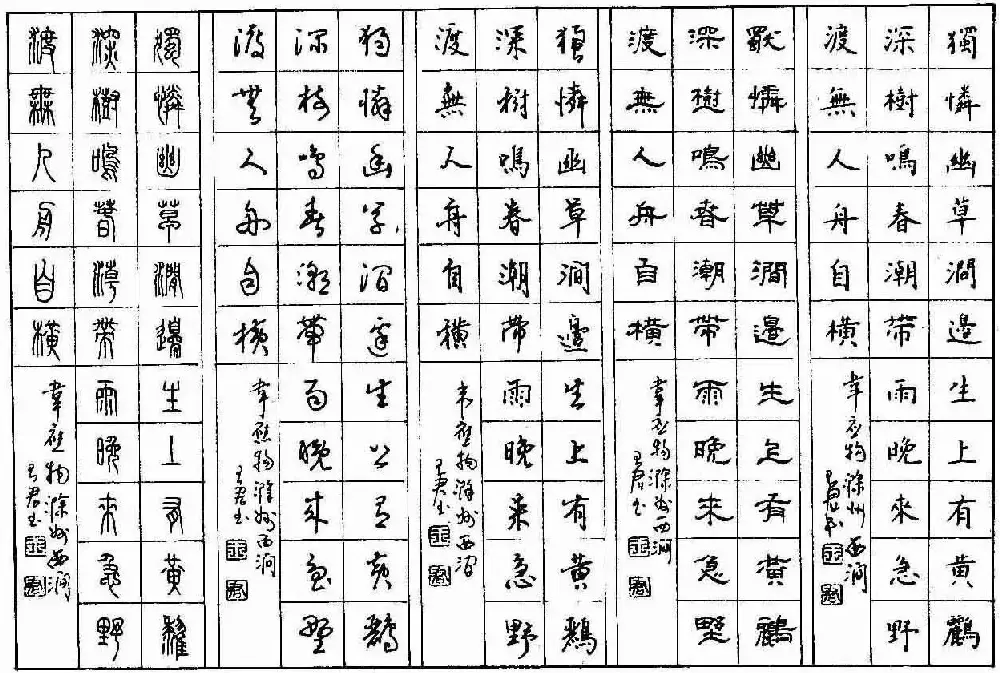 獨憐幽草澗邊生上有黃鸝
深樹鳴春潮帶雨晚來急野
渡無人舟自橫
韋應物滁州西澗
王君书
獨憐幽草澗邊生上有黃鸝
深樹鳴春潮帶雨晚來急野
渡無人舟自橫
韋應物滁州西澗
王君书
獨憐幽草澗邊生上有黃鸝
深樹鳴春潮帶雨晚來急野
渡無人舟自橫
韋應物滁州西澗
王君书
獨憐幽草澗邊生上有黃鸝
深樹鳴春潮帶雨晚來急野
渡無人舟自橫
韋應物滁州西澗
王君书
獨憐幽草澗邊生上有黃鸝
深樹鳴春潮帶雨晚來急野
渡無人舟自橫
韋應物滁州西澗
王君书